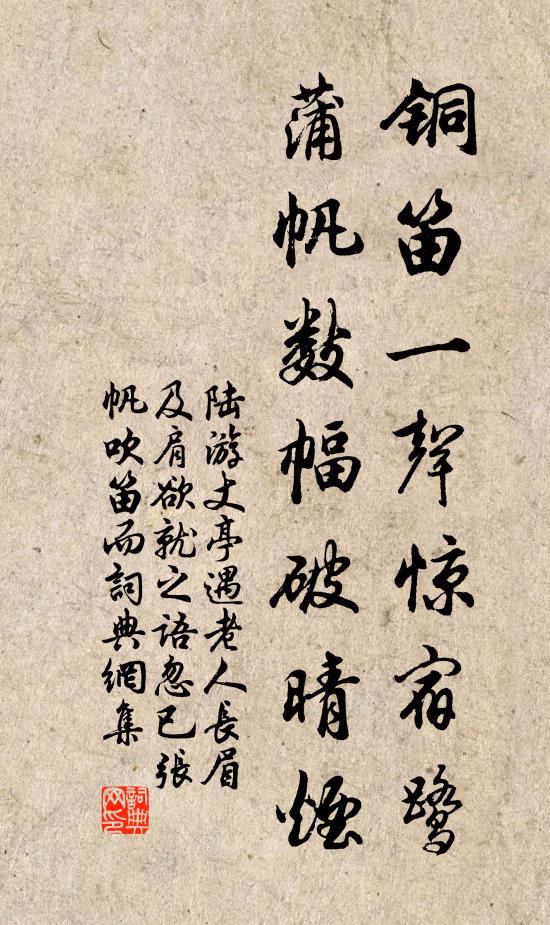 铜笛一声惊宿鹭
蒲帆数幅破晴烟
陆游丈亭遇老人長眉
及肩欲就之语忽已張
帆吹笛而詞典網集
詞典网印